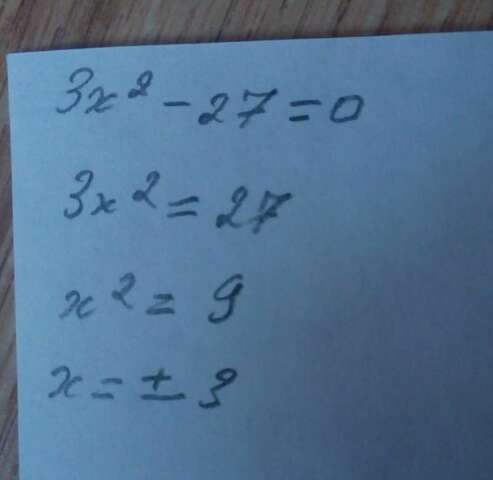 3x² - 27 = 0
3x² = 27
x² = 9
x = ± 3